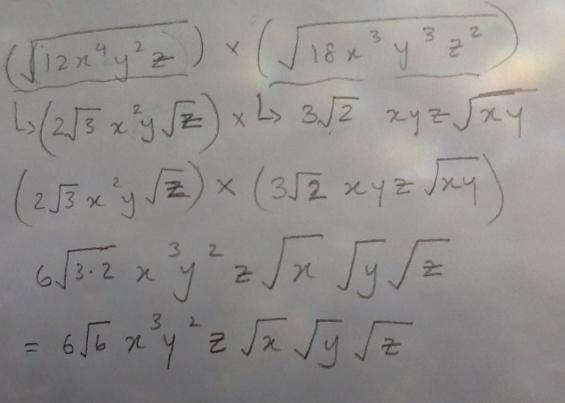 (√12x⁴y²z) × (√18x³y³z²)
↳(2√3 x²y√z) × ↳ 3√2 xyz√xy
(2√3 x²y√z) × (3√2 xyz√xy)
6√3·2 x³y² z√x √y√z
= 6√6 x³y² z√x√y√z